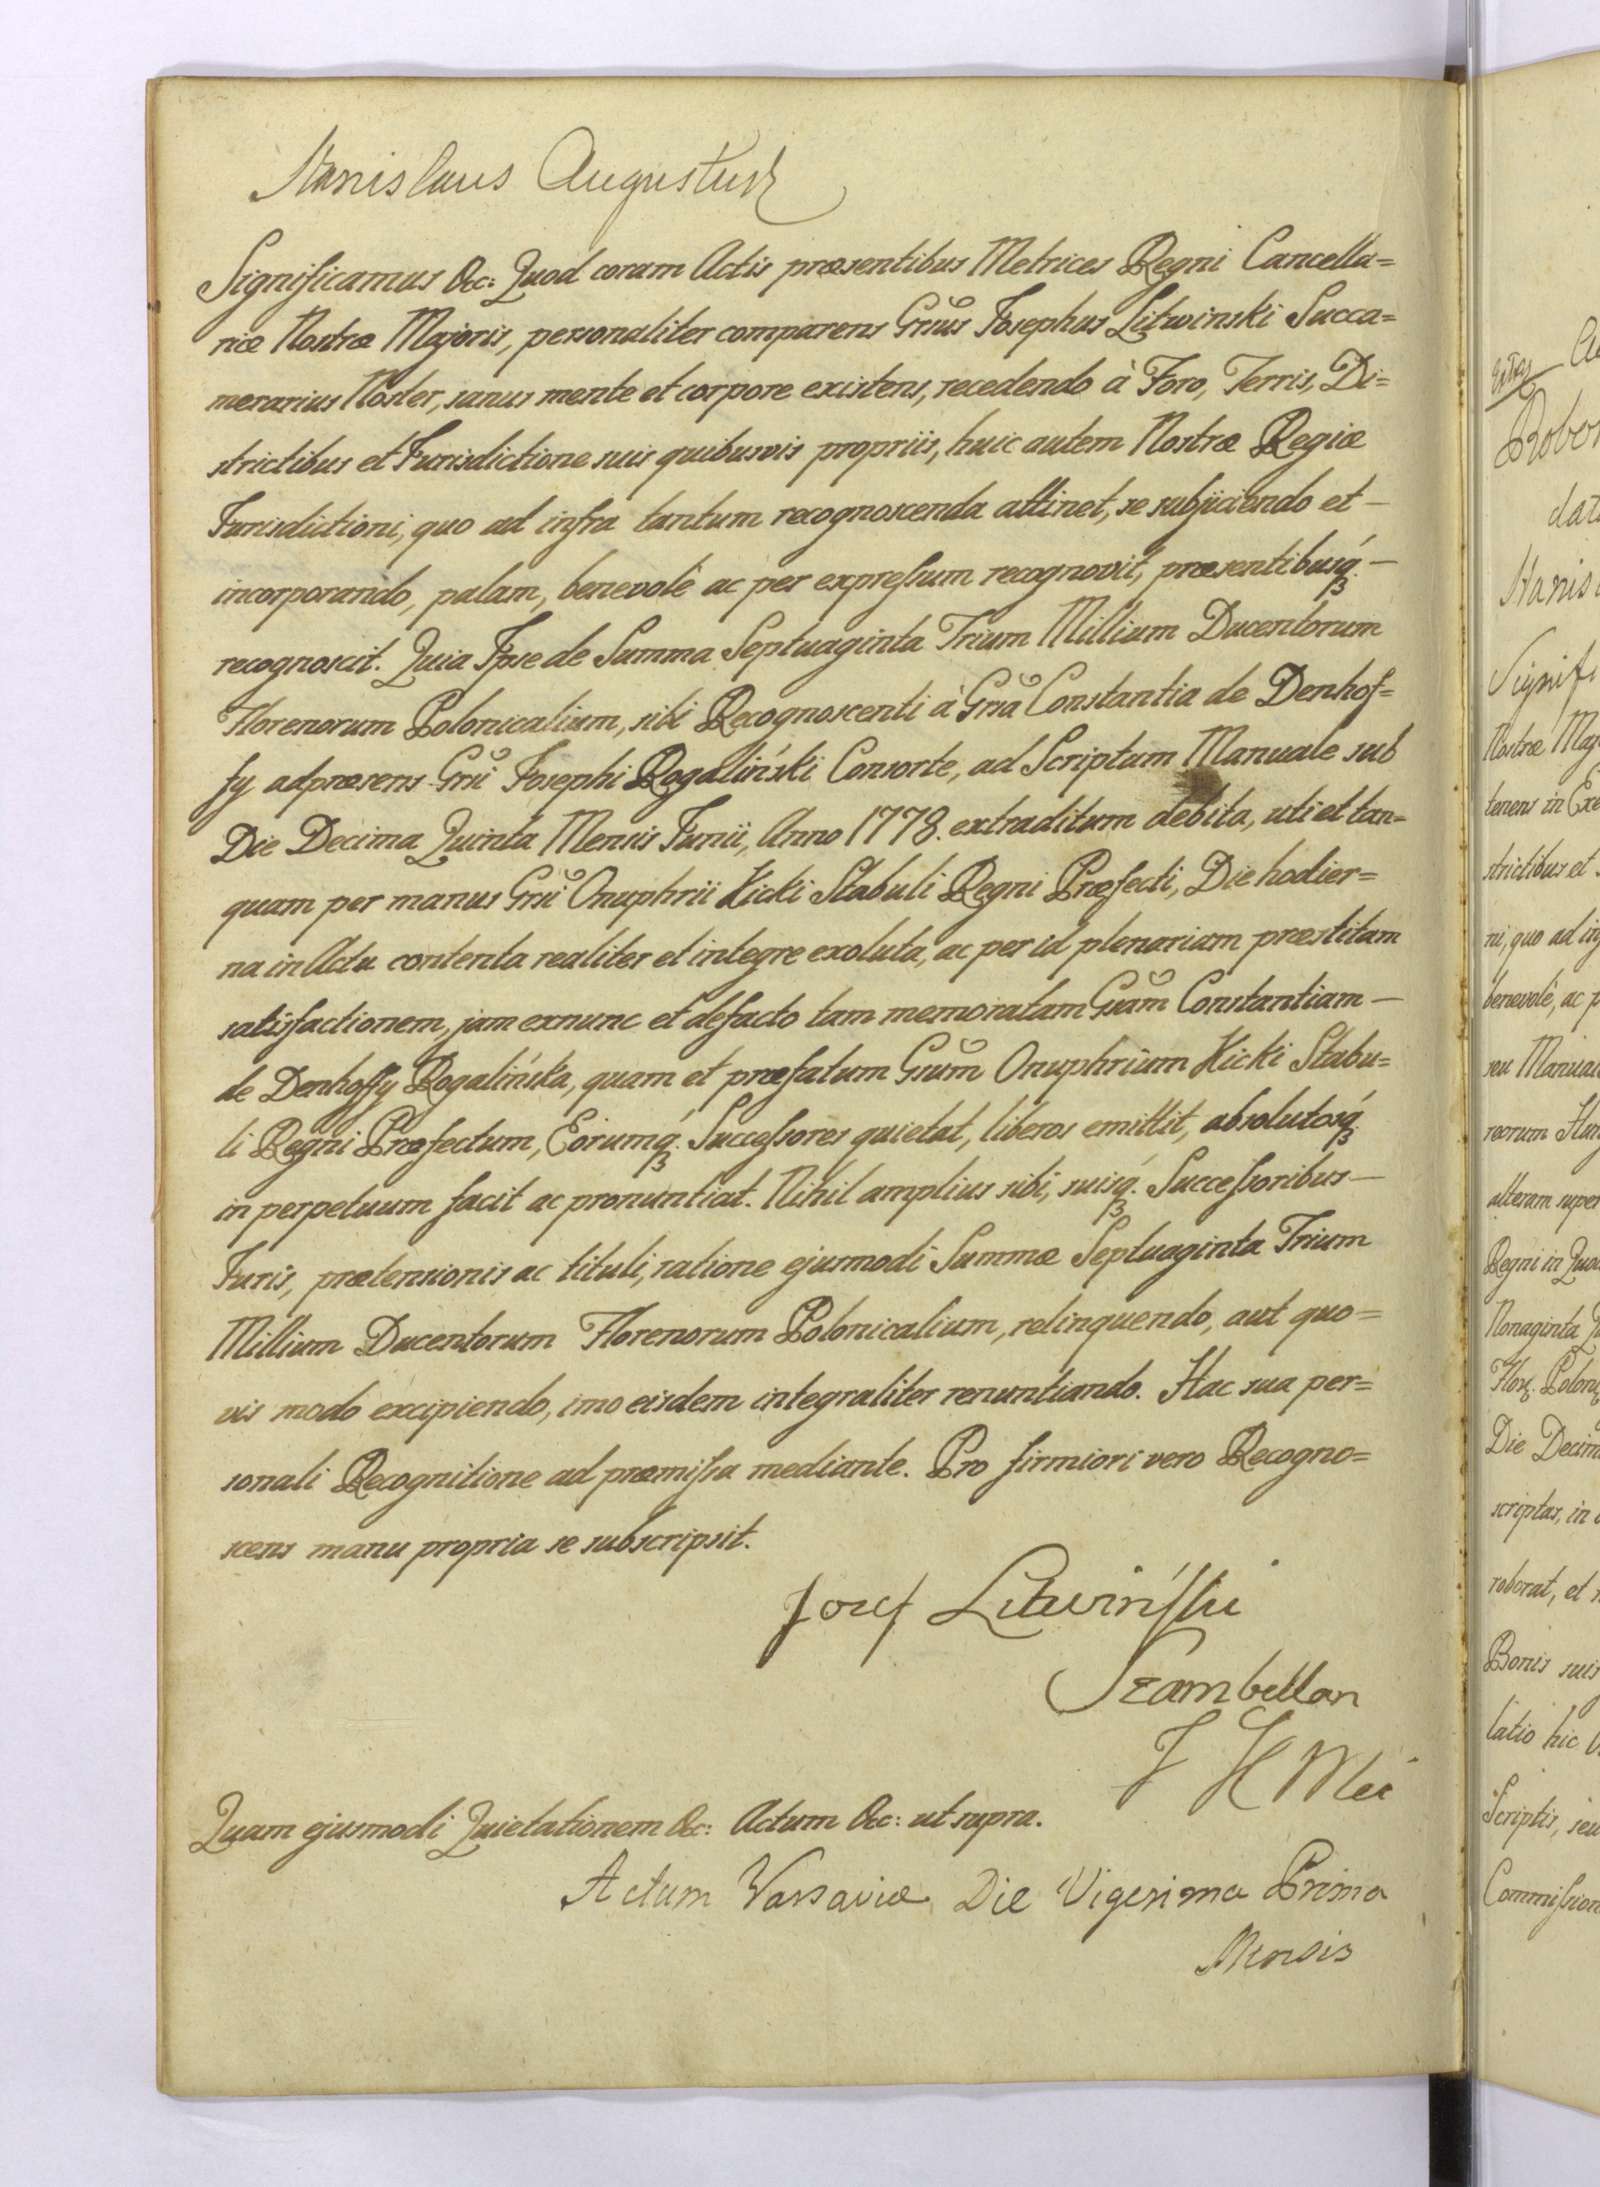 Stanislaus Augustus
Significamus &c: Quod coram Actis præsentibus Metrices Regni Cancella=
riæ Nostræ Majoris, personaliter comparens Grũs Josephus Litwinski Succa=
merarius Noster, sanus mente et corpore existens, recedendo à Foro, Terris, Di=
strictibus et Jurisdictione suis quibusvis propriis, huic autem Nostræ Regiæ
Jurisdictioni, quo ad infra tantum recognoscenda attinet, se subjiciendo et —
incorporando, palam, benevolè ac per expressum recognovit, præsentibusq́₃. —
recognoscit. Quia Ipse de Summa Septuaginta Trium Millium Ducentorum
Florenorum Polonicalium, sibi Recognoscenti à Grsã Constantia de Denhof=
fy adpræsens Grsi Josephi Rogaliński Consorte, ad Scriptum Manuale sub
Die Decima Quinta Mensis Junii, Anno 1778. extraditum debita, uti et tan=
quam per manus Grsi Onuphrii Kicki Stabuli Regni Præfecti, Die hodier=
na in Actu contenta realiter et integre exoluta, ac per id plenariam præstitam
satisfactionem, jam exnunc et defacto tam memoratam Gsãm Constantiam —
de Denhoffy Rogalińska, quam et præfatum Gsũm Onuphrium Kicki Stabu=
li Regni Præfectum, Eorumq́₃. Successores quietat, liberos emittit, absolutosq́₃
in perpetuum facit ac pronuntiat. Nihil amplius sibi, suisq́₃. Successoribus —
Juris, prætensionis ac tituli, ratione ejusmodi Summæ Septuaginta Trium
Millium Ducentorum Florenorum Polonicalium, relinquendo, aut quo=
vis modo excipiendo, imo eisdem integraliter renuntiando. Hac sua per=
sonali Recognitione ad præmissa mediante. Pro firmiori vero Recogno=
scens manu propria se subscripsit.
Jozef Litwiński
Szambellan
J K Mci
Quam ejusmodi Quietationem &c: Actum &c: ut supra.
Actum Varsaviæ Die Vigesima Prima
Mensis
Robor
Stanis
Signif
Nostræ Maj
tenens in Exe
strictibus et
ni, quo ad in
benevolè, ac p
seu Manual
alteram super
Regni in Quo
Nonaginta
Die Decim
scriptas, in
roborat, et
Bonis suis
latio hic
Scriptis, seu
Commission